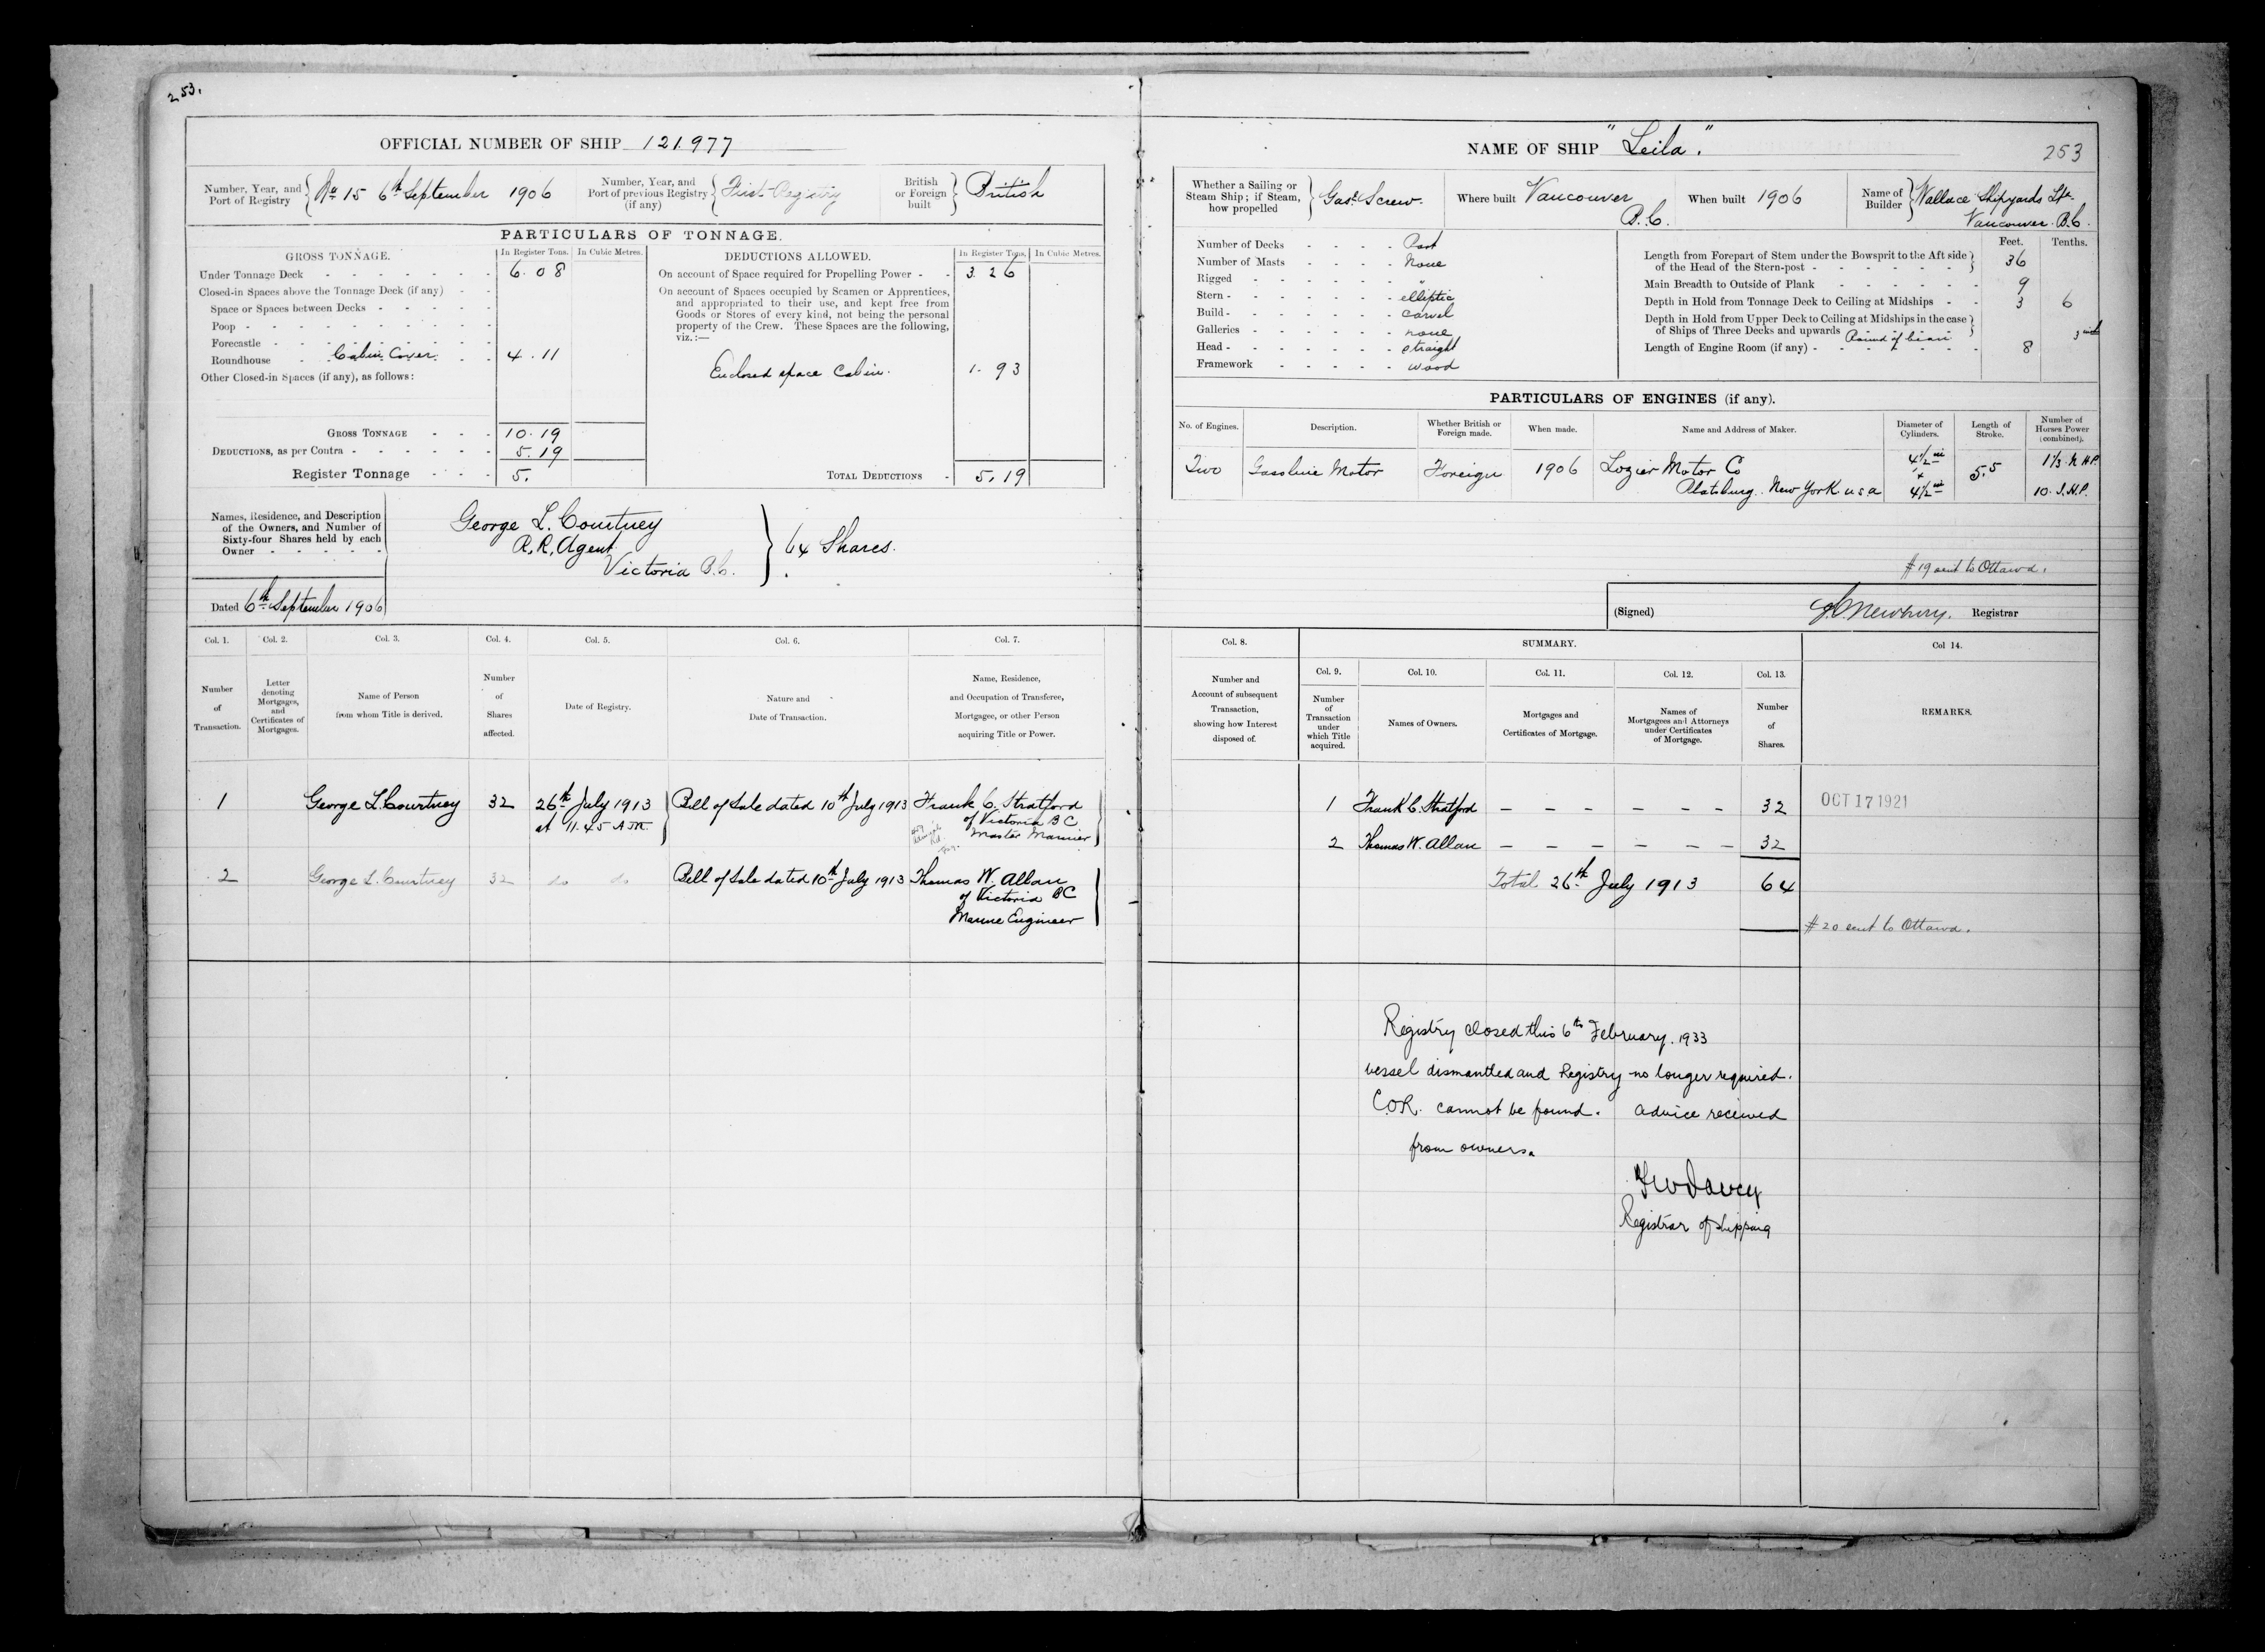 253.
OFFICIAL NUMBER OF SHIP 121.977
Number, Year, and Port of Registry No 15 6th September 1906
Number, Year, and Port of previous Registry (if any) First Registry
British or Foreign built British
PARTICULARS OF TONNAGE.
GROSS TONNAGE. In Register Tons. In Cubic Metres.
Under Tonnage Deck 6.08
Closed-in Spaces above the Tonnage Deck (if any)
Space or Spaces between Decks
Poop
Forecastle
Roundhouse Cabin Cover 4.11
Other Closed-in Spaces (if any), as follows:
GROSS TONNAGE 10.19
DEDUCTIONS, as per Contra 5.19
Register Tonnage 5.
DEDUCTIONS ALLOWED. In Register Tons. In Cubic Metres.
On account of Space required for Propelling Power 3.26
On account of Spaces occupied by Seamen or Apprentices,
and appropriated to their use, and kept free from
Goods or Stores of every kind, not being the personal
property of the Crew. These Spaces are the following,
viz.:—
Enclosed space Cabin. 1.93
TOTAL DEDUCTIONS 5.19
Names, Residence, and Description
of the Owners, and Number of
Sixty-four Shares held by each
Owner
George L. Courtney
R.R. Agent
Victoria B.C.
64 Shares.
Dated 6th September 1906
Col. 1. Col. 2. Col. 3. Col. 4. Col. 5. Col. 6. Col. 7.
Number of Transaction.
Letter denoting Mortgages, and Certificates of Mortgages.
Name of Person from whom Title is derived.
Number of Shares affected.
Date of Registry.
Nature and Date of Transaction.
Name, Residence, and Occupation of Transferee, Mortgagee, or other Person acquiring Title or Power.
1 George L. Courtney 32 26th July 1913 Bill of Sale dated 10th July 1913 Frank C. Stratford
at 11.45 A.M. of Victoria BC
Master Mariner
2 George L. Courtney 32 do do Bill of Sale dated 10th July 1913 Thomas W. Allan
of Victoria BC
Marine Engineer
NAME OF SHIP "Leila".
253
Whether a Sailing or Steam Ship; if Steam, how propelled Gas. Screw.
Where built Vancouver B.C.
When built 1906
Name of Builder Wallace Shipyards Ltd. Vancouver. B.C.
Number of Decks Part
Number of Masts None
Rigged "
Stern elliptic
Build carvel
Galleries none
Head straight
Framework wood
Feet. Tenths.
Length from Forepart of Stem under the Bowsprit to the Aft side
of the Head of the Stern-post 36
Main Breadth to Outside of Plank 9
Depth in Hold from Tonnage Deck to Ceiling at Midships 3 6
Depth in Hold from Upper Deck to Ceiling at Midships in the case
of Ships of Three Decks and upwards Round of beam
Length of Engine Room (if any) 8
PARTICULARS OF ENGINES (if any).
No. of Engines. Description. Whether British or Foreign made. When made. Name and Address of Maker. Diameter of Cylinders. Length of Stroke. Number of Horses Power (combined).
Two Gasoline Motor Foreign 1906 Lozier Motor Co 4½ in 5.5 1⅓ N.H.P.
Platsburg. New York. U.S.A x 4½ in 10. I.H.P.
# 19 sent to Ottawa.
(Signed) Newbury. Registrar
Col. 8. SUMMARY. Col 14.
Number and Account of subsequent Transaction, showing how Interest disposed of.
Col. 9. Col. 10. Col. 11. Col. 12. Col. 13.
Number of Transaction under which Title acquired.
Names of Owners.
Mortgages and Certificates of Mortgage.
Names of Mortgagees and Attorneys under Certificates of Mortgage.
Number of Shares.
REMARKS.
1 Frank C. Stratford – – – – – – 32 OCT 17 1921
2 Thomas W. Allan – – – – – – 32
Total 26th July 1913 64
# 20 sent to Ottawa.
Registry closed this 6th February. 1933
vessel dismantled and Registry no longer required.
C.O.R. cannot be found. advice received
from owners.
Registrar of Shipping